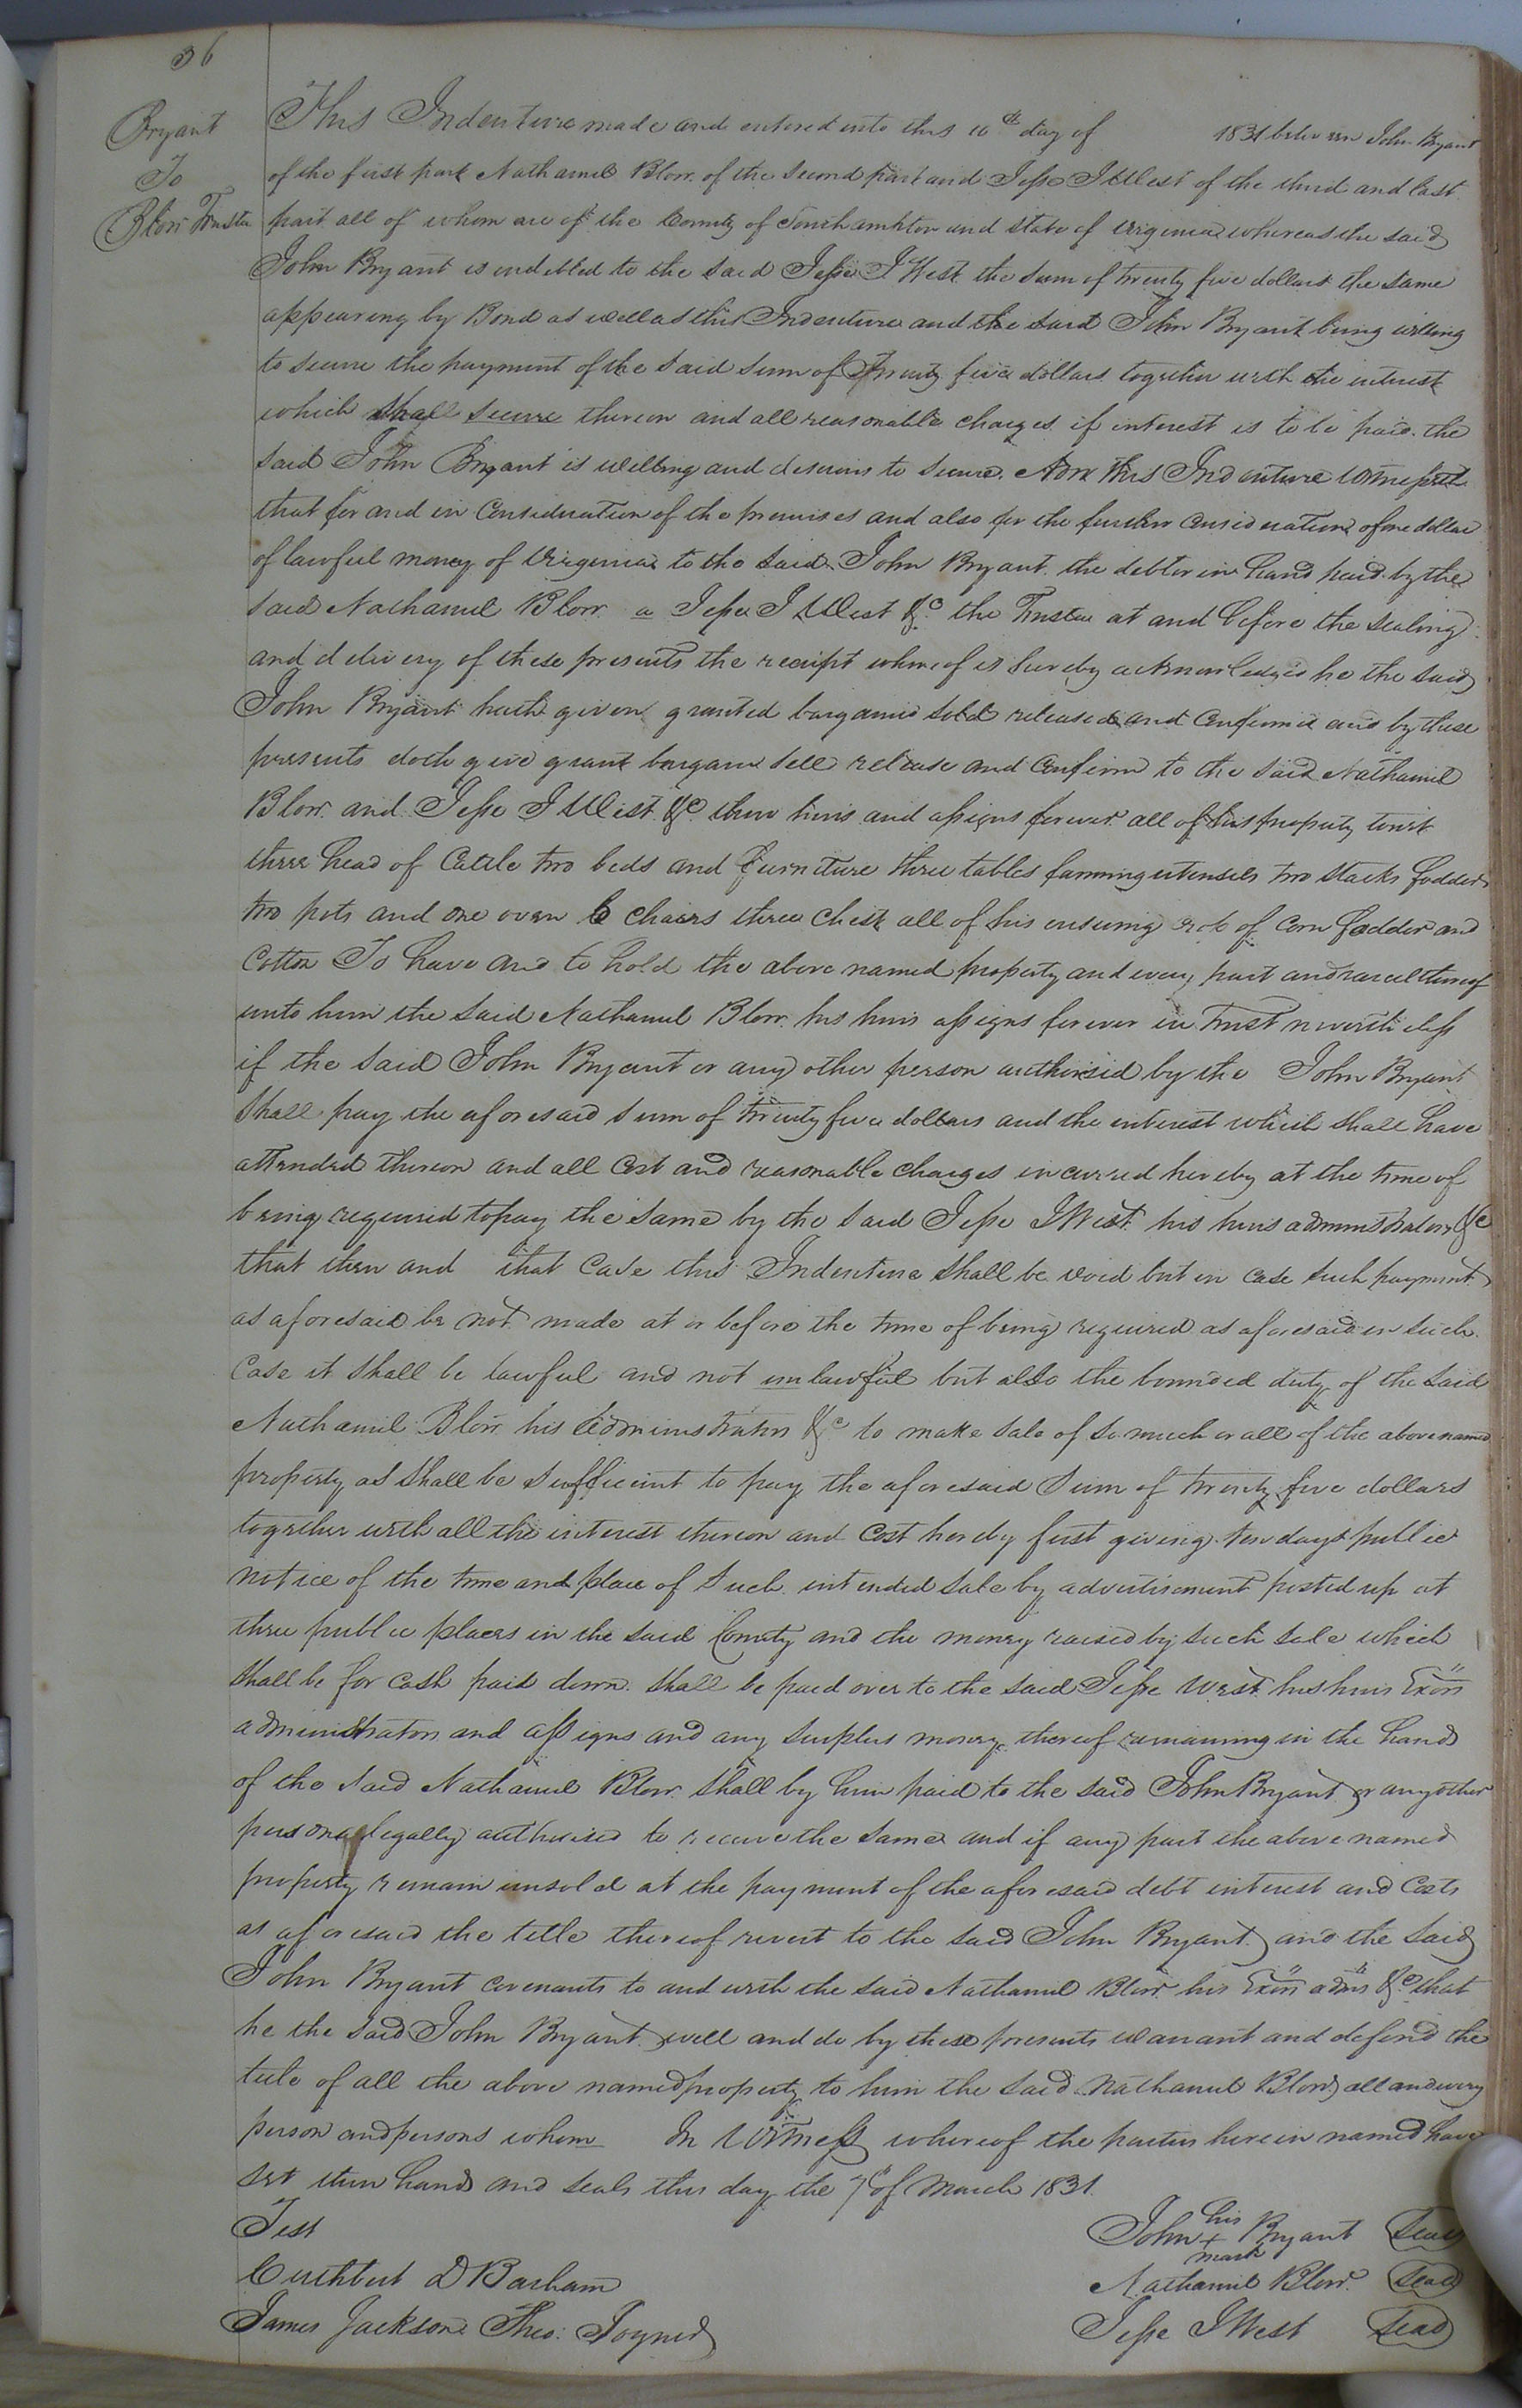 36
Bryant
To
Blow Trustee
This Indenture made and entered into this 10th day of 1831 between John Bryant
of the first part Nathaniel Blow of the Second part and Jesse J West of the third and last
part all of whom are of the County of Southamkton and state of Virginia whereas the said
John Bryant is indebted to the said Jesse J West the sum of twenty five dollars the same
appearing by Bond as well as this Indenture and the said John Bryant being willing
to secure the payment of the said sum of Twenty five dollars together with the interest
which shall secure thereon and all reasonable charges if interest is to be paid the
said John Bryant is willing and desirous to secure. Now this Indenture Witnesseth
that for and in Consideration of the premises and also for the further consideration of one dollar
of lawful money of Virginia to the said John Bryant the debtor in hand paid by the
said Nathaniel Blow a Jesse J West &c the Trustee at and before the sealing
and delivery of these presents the receipt whereof is hereby acknowledged he the said
John Bryant hath given granted bargained sold released and confirmed and by these
presents doth give grant bargain sell release and confirm to the said Nathaniel
Blow and Jesse J West &c their heirs and assigns forever all of his property towit
three head of Cattle two beds and furniture three tables farming utensils two stacks fodder
two pots and one oven 6 chairs three chest all of his ensuing crop of Corn fodder and
Cotton To have and to hold the above named property and every part and parcel thereof
unto him the said Nathaniel Blow his heirs assigns forever in Trust nevertheless
if the said John Bryant or any other person authorised by the John Bryant
shall pay the aforesaid sum of twenty five dollars and the interest which shall have
attended thereon and all Cost and reasonable charges incurred hereby at the time of
being required to pay the same by the said Jesse J West his heirs administrators &c
that then and that Case this Indenture shall be void but in case such payment
as aforesaid be not made at or before the time of being required as aforesaid in such
Case it shall be lawful and not unlawful but also the bounded duty of the said
Nathaniel Blow his Administrators &c to make sale of so much or all of the above named
property as shall be sufficient to pay the aforesaid sum of twenty five dollars
together with all the interest thereon and Cost hereby first giving ten days public
notice of the time and place of such intended sale by advertisement posted up at
three public places in the said County and the money raised by such sale which
shall be for cash paid down shall be paid over to the said Jesse West his heirs Exors
administrators and assigns and any surplus money thereof remaining in the hands
of the said Nathaniel Blow shall by him paid to the said John Bryant or any other
person legally authorised to receive the same and if any part the above named
property remain unsold at the payment of the aforesaid debt interest and Costs
as aforesaid the title thereof revert to the said John Bryant and the said
John Bryant covenants to and with the said Nathaniel Blow his Exors adms &c that
he the said John Bryant will and do by these presents warrant and defend the
title of all the above named property to him the said Nathaniel Blow all and every
person and persons whom In Witness whereof the parties herein named have
set their hands and seals this day the 7th of March 1831.
Test
John his + mark Bryant Seal
Cuthbert D Barham
Nathaniel Blow Seal
James Jackson Theo: Joyner
Jesse J West Seal